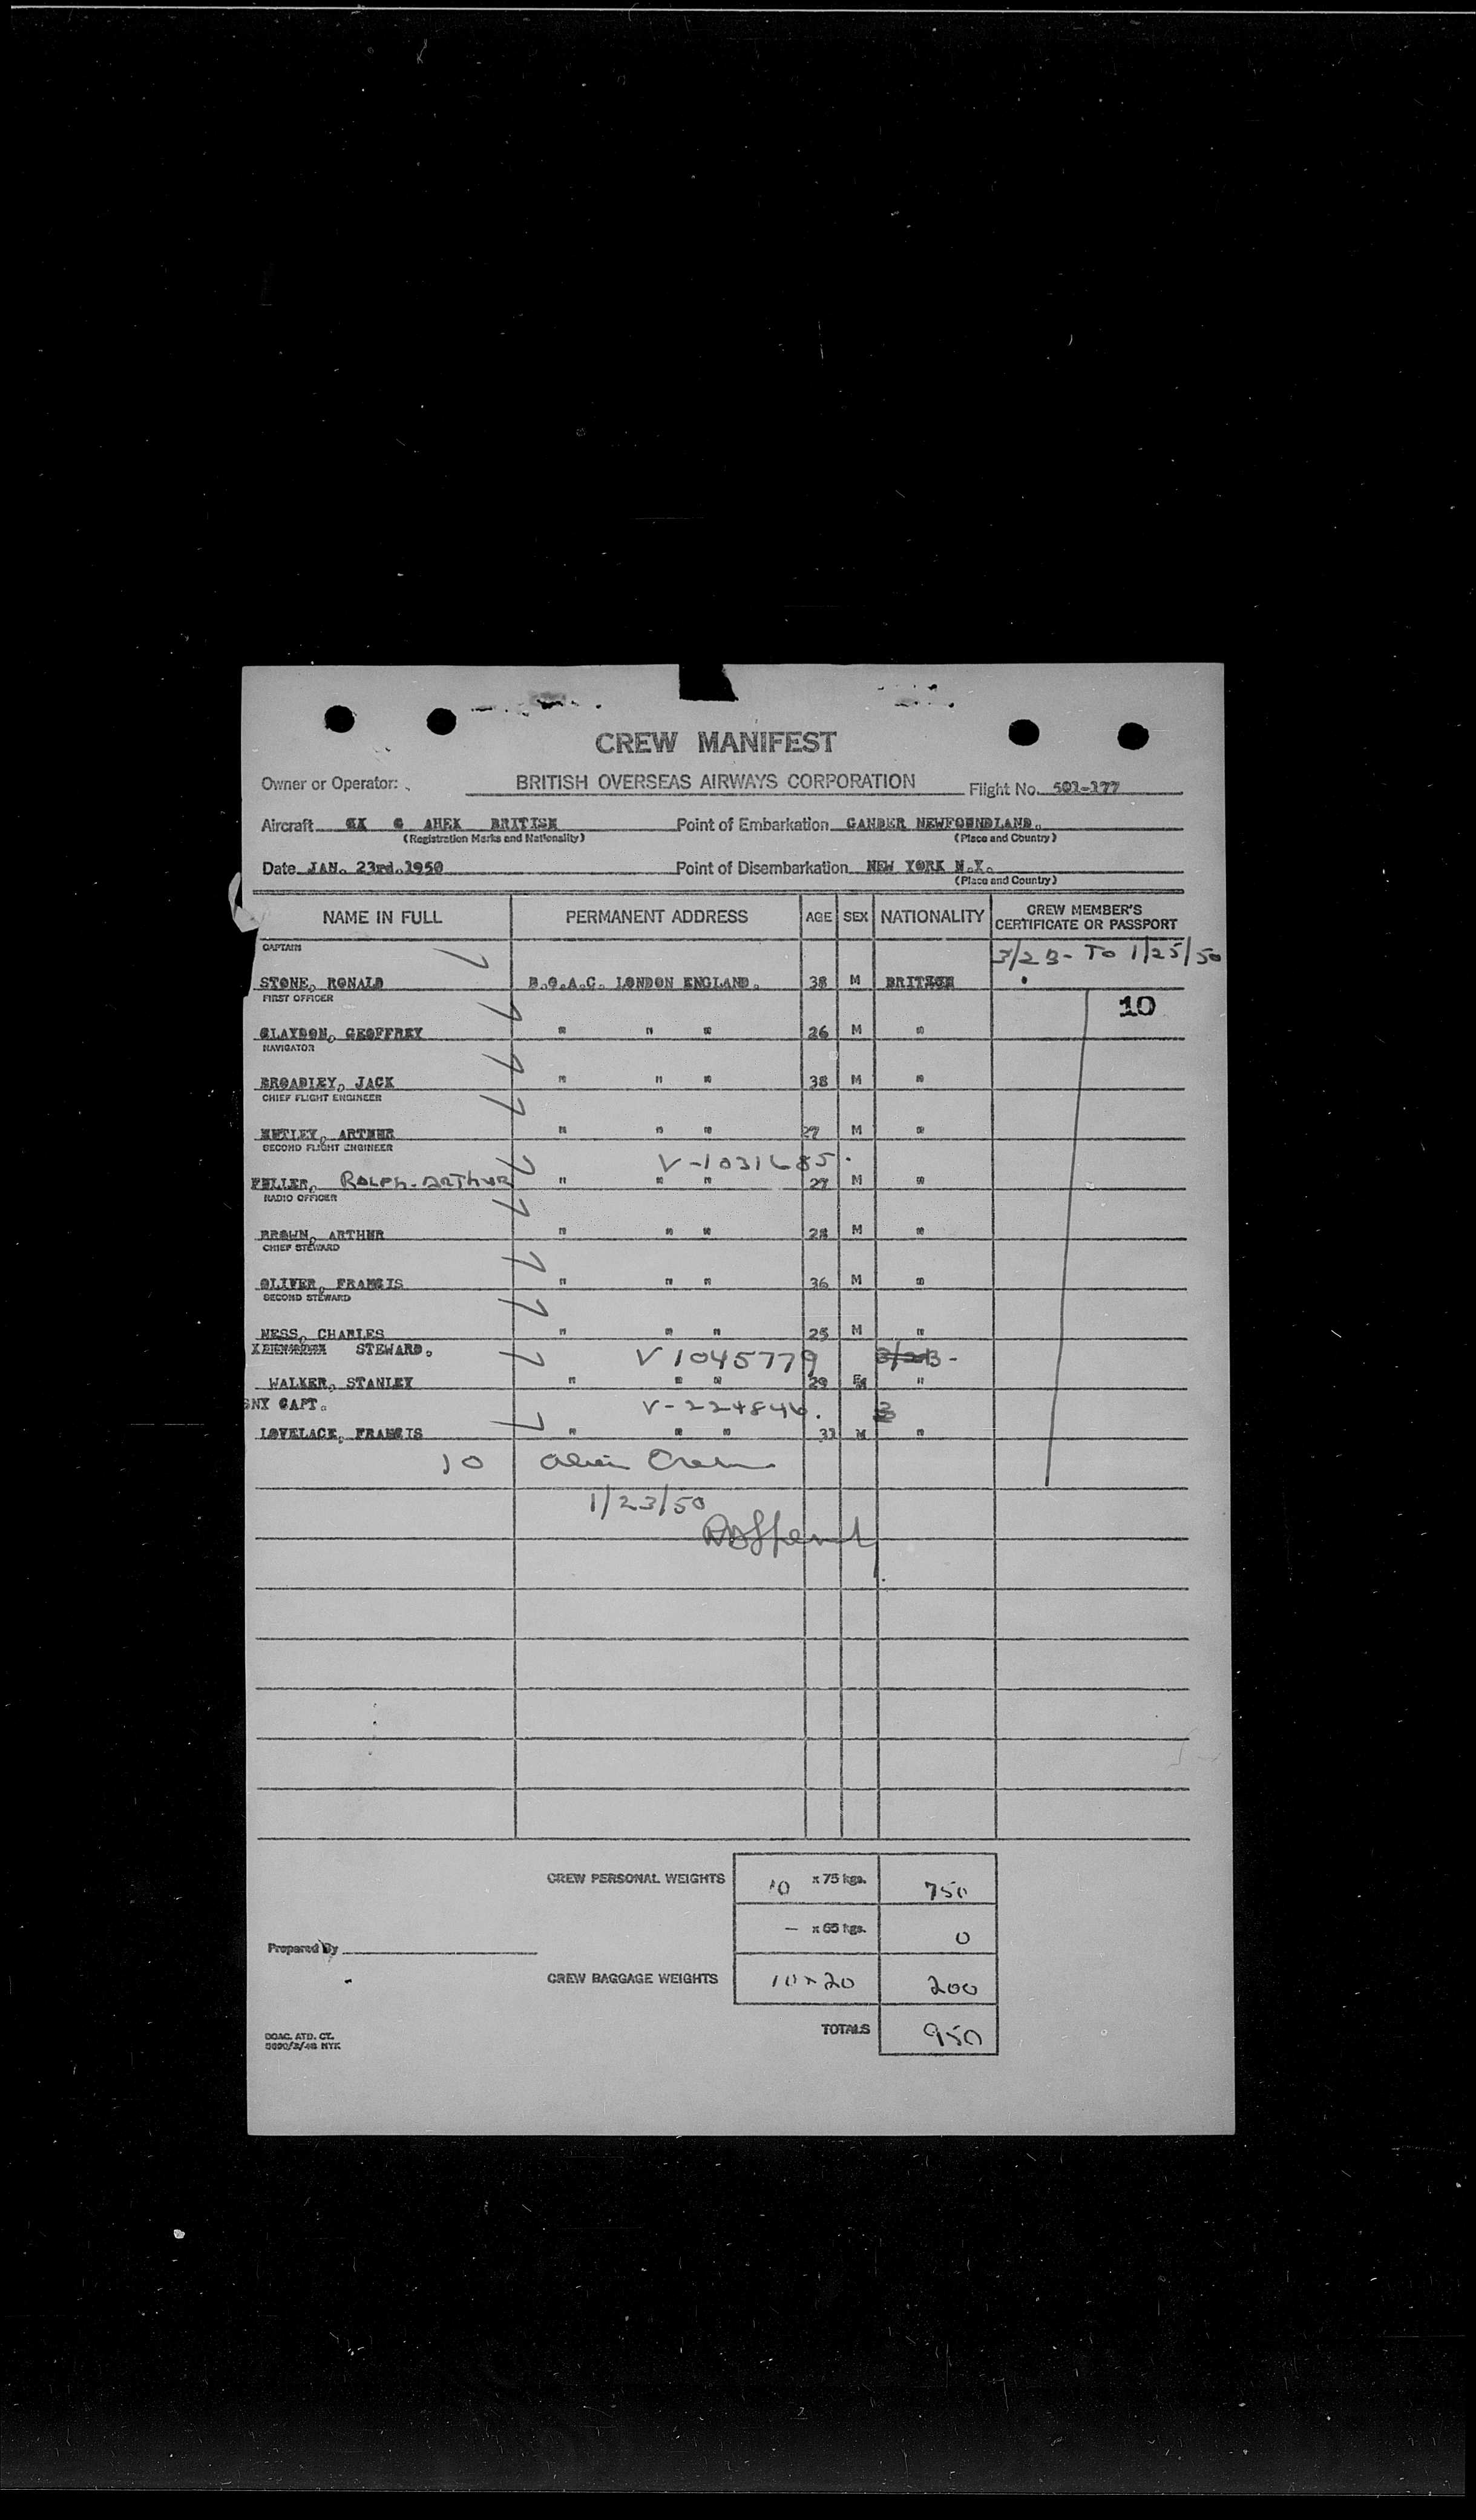 CREW MANIFEST
Owner or Operator: BRITISH OVERSEAS AIRWAYS CORPORATION Flight No. 501-177
Aircraft G AHEK BRITISH Point of Embarkation GANDER NEWFOUNDLAND.
(Registration Marks and Nationality) (Place and Country)
Date JAN. 23rd.1950 Point of Disembarkation NEW YORK N.Y.
(Place and Country)
NAME IN FULL PERMANENT ADDRESS AGE SEX NATIONALITY CREW MEMBER'S CERTIFICATE OR PASSPORT
CAPTAIN 3/2 B- To 1/25/50
STONE, RONALD B.O.A.C. LONDON ENGLAND. 38 M BRITISH
FIRST OFFICER 10
CLAYDON, GEOFFREY " " " 26 M "
NAVIGATOR
BROADLEY, JACK " " " 38 M "
CHIEF FLIGHT ENGINEER
ARTHUR " " " 27 M "
SECOND FLIGHT ENGINEER V-1031685.
FULLER, RALPH-ARTHUR " " " 27 M "
RADIO OFFICER
BROWN, ARTHUR " " " 28 M "
CHIEF STEWARD
OLIVER, FRANCIS " " " 36 M "
SECOND STEWARD
NESS, CHARLES " " " 25 M "
STEWARD. V 1045779
WALKER, STANLEY " " " 29 M "
SNY CAPT. V-224846.
LOVELACE, FRANCIS " " " 31 M "
10 alien Crew
1/23/50
CREW PERSONAL WEIGHTS 10 x 75 kgs. 750
— x 65 kgs. 0
Prepared By
CREW BAGGAGE WEIGHTS 10 x 20 200
TOTALS 950
BOAC. ATD. CT.
NYK